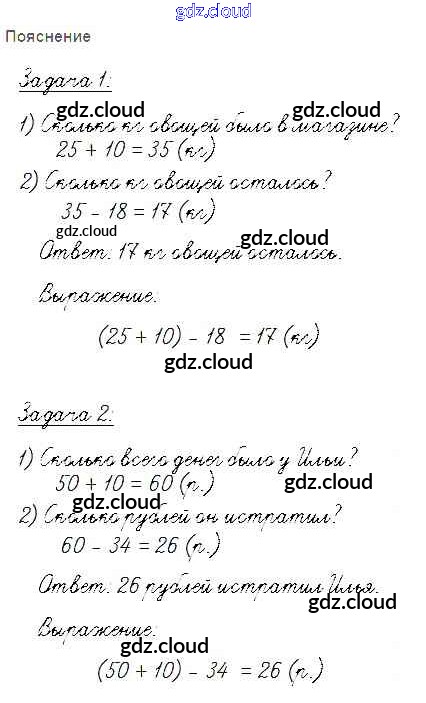 gdz.cloud
Пояснение
Задача 1:
gdz.cloud gdz.cloud
1) Сколько кг овощей было в магазине?
25 + 10 = 35 (кг)
gdz.cloud
2) Сколько кг овощей осталось?
35 - 18 = 17 (кг)
gdz.cloud gdz.cloud
Ответ: 17 кг овощей осталось.
Выражение:
(25 + 10) - 18 = 17 (кг)
gdz.cloud
Задача 2:
1) Сколько всего денег было у Ильи?
50 + 10 = 60 (р.)
gdz.cloud gdz.cloud
2) Сколько рублей он истратил?
60 - 34 = 26 (р.)
Ответ: 26 рублей истратил Илья.
gdz.cloud
Выражение:
gdz.cloud
(50 + 10) - 34 = 26 (р.)